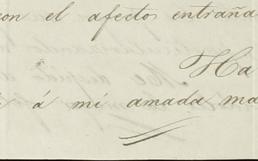 con el afecto entraña
Ha
á mi amada ma